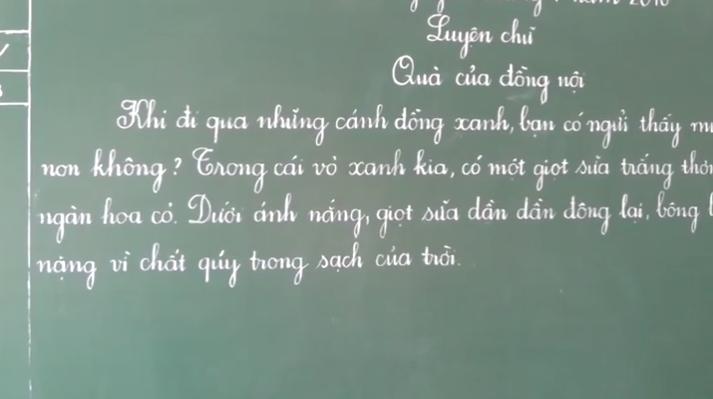 Luyện chữ
Quà của đồng nội
Khi đi qua những cánh đồng xanh, bạn có ngửi thấy
non không? Trong cái vỏ xanh kia, có một giọt sữa trắng
ngàn hoa cỏ. Dưới ánh nắng, giọt sữa dần dần đông lại, bông
nặng vì chất qúy trong sạch của trời.